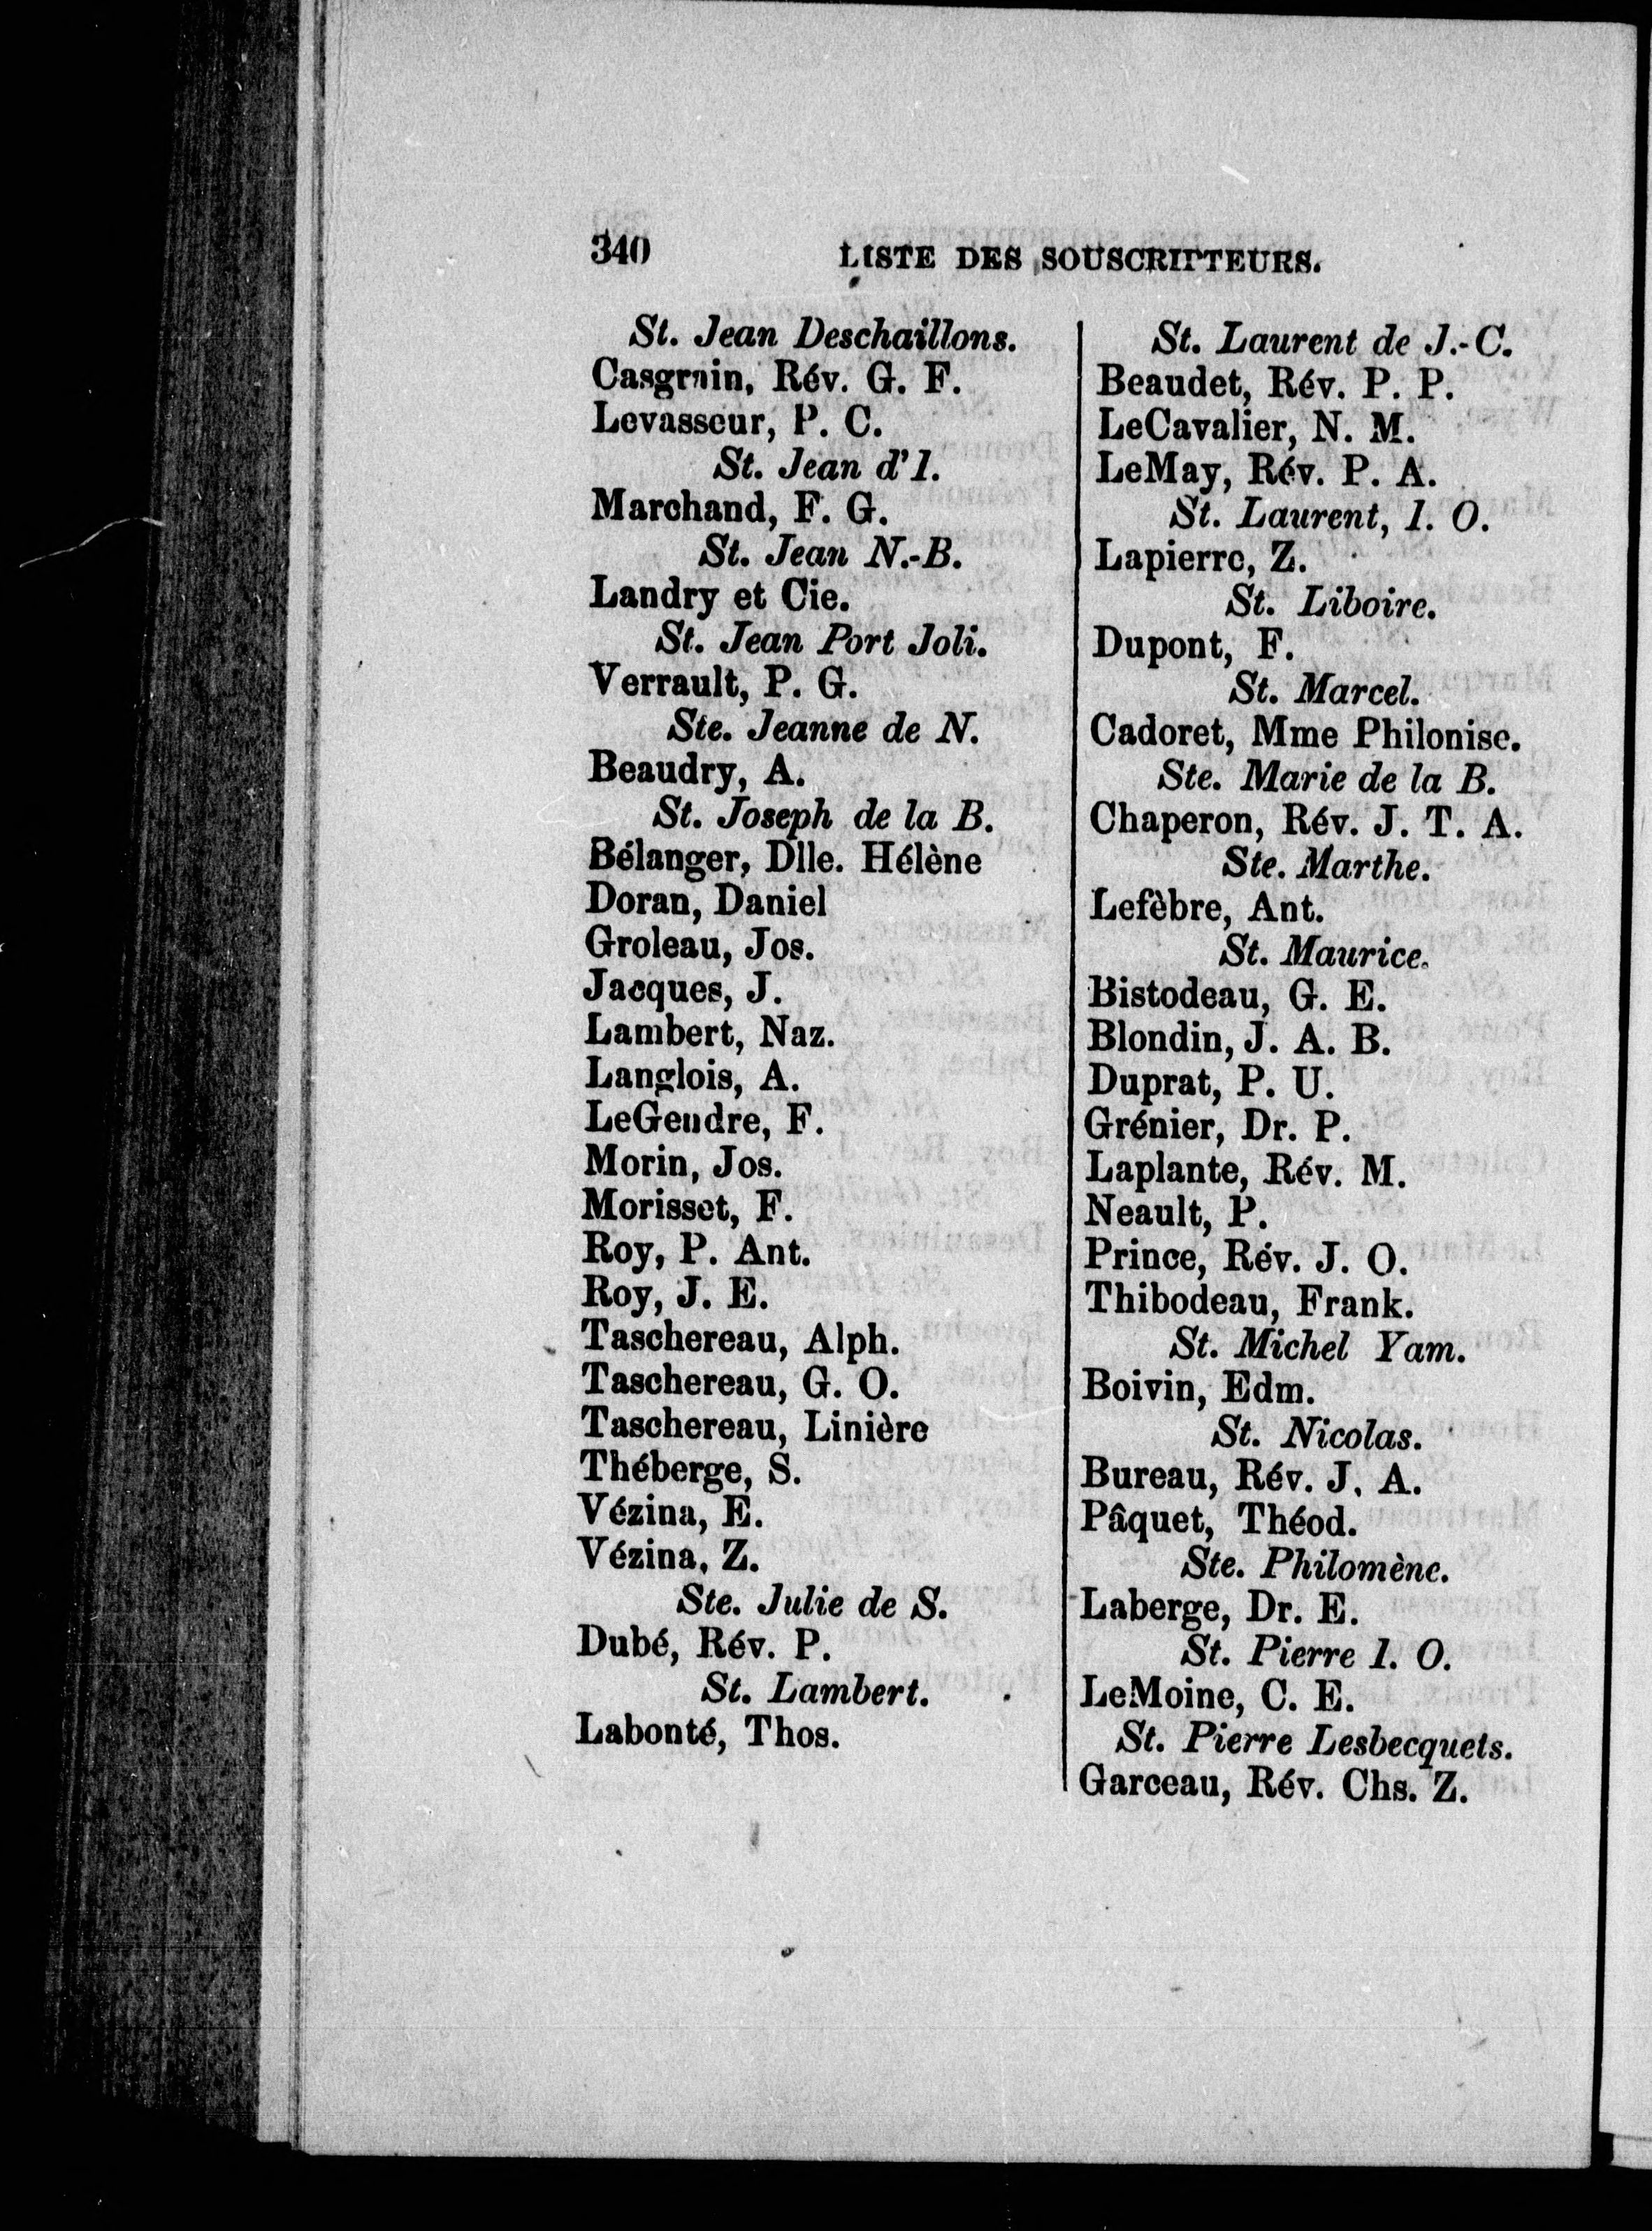 340
LISTE DES SOUSCRIPTEURS.
St. Jean Deschaillons.
Casgrain, Rév. G. F.
Levasseur, P. C.
St. Jean d'I.
Marchand, F. G.
St. Jean N.-B.
Landry et Cie.
St. Jean Port Joli.
Verrault, P. G.
Ste. Jeanne de N.
Beaudry, A.
St. Joseph de la B.
Bélanger, Dlle. Hélène
Doran, Daniel
Groleau, Jos.
Jacques, J.
Lambert, Naz.
Langlois, A.
LeGendre, F.
Morin, Jos.
Morisset, F.
Roy, P. Ant.
Roy, J. E.
Taschereau, Alph.
Taschereau, G. O.
Taschereau, Linière
Théberge, S.
Vézina, E.
Vézina, Z.
Ste. Julie de S.
Dubé, Rév. P.
St. Lambert.
Labonté, Thos.
St. Laurent de J.-C.
Beaudet, Rév. P. P.
LeCavalier, N. M.
LeMay, Rév. P. A.
St. Laurent, I. O.
Lapierre, Z.
St. Liboire.
Dupont, F.
St. Marcel.
Cadoret, Mme Philonise.
Ste. Marie de la B.
Chaperon, Rév. J. T. A.
Ste. Marthe.
Lefèbre, Ant.
St. Maurice.
Bistodeau, G. E.
Blondin, J. A. B.
Duprat, P. U.
Grénier, Dr. P.
Laplante, Rév. M.
Neault, P.
Prince, Rév. J. O.
Thibodeau, Frank.
St. Michel Yam.
Boivin, Edm.
St. Nicolas.
Bureau, Rév. J. A.
Pâquet, Théod.
Ste. Philomène.
Laberge, Dr. E.
St. Pierre I. O.
LeMoine, C. E.
St. Pierre Lesbecquets.
Garceau, Rév. Chs. Z.